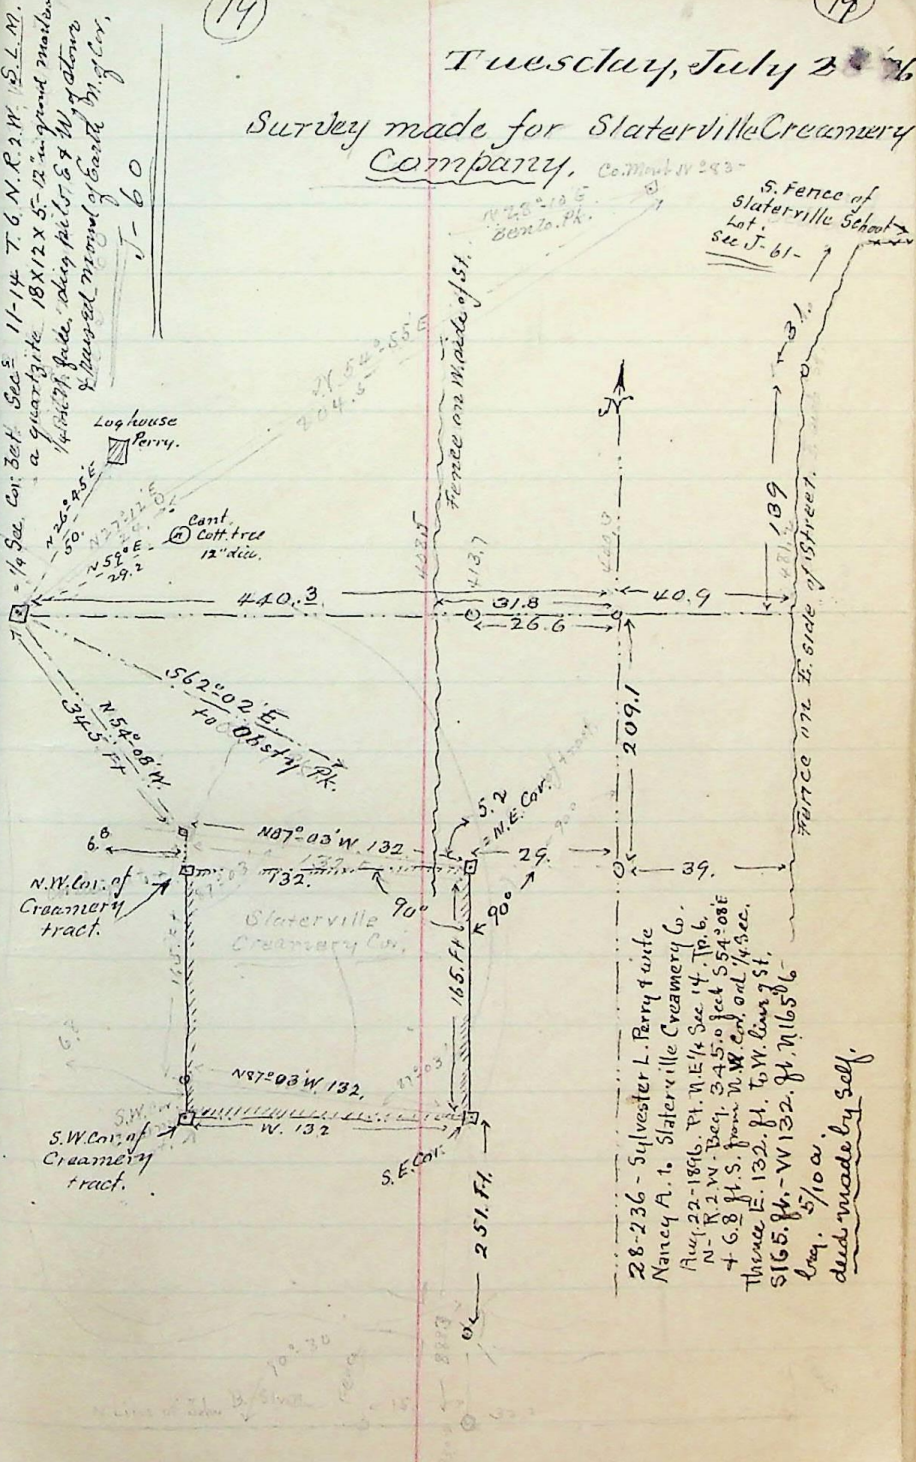 14
14
Tuesday, July 2
Survey made for Slaterville Creamery
Company.
Co. Mont. No 83-
N 28°-10'E
Ben Lo. Pk.
S. Fence of
Slaterville School
Lot.
See J-61-
1/4 Sec. Cor. Bet. Secs 11-14 T. 6 N. R. 2 W. S. L. M.
a quartzite 18x12x5-12" in ground marked
1/4 on N. face, dug pits E & W of stone
& raised mound of Earth N. of Cor.
J-60
N 54°-55'E
204.5
Fence on W. side of St.
31.
139
Log house
Perry.
N 26°-45'E
50.
N 27°-12'E
N 59°E
29.2
Cant.
Cott. tree
12" dia.
413.7
440.3
31.8
26.6
40.9
Fence on E. side of Street.
209.1
S 62°-02'E.
to Obsty Pk.
N 54°-08'W.
345. Ft
6.8
N 87°-03'W 132
132.
5.2
= N.E. Cor.
90°
29.
39.
N.W. Cor. of
Creamery
tract.
90°
90°
Slaterville
Creamery Cor.
165. Ft
N 87°-03'W. 132.
W. 132
S.W. Cor. of
Creamery
tract.
S.E. Cor.
251. Ft.
28-236 - Sylvester L. Perry & wife
Nancy A. to Slaterville Creamery Co.
Aug. 22-1896. Pt. N.E 1/4 Sec 14. Tp. 6.
N- R. 2. W- Beg. 345.0 feet S 54°-08'E
& 6.8 ft. S. from N.W. Cor. and 1/4 Sec.
Thence E. 132. ft. to W. line of St.
S 165. ft. - W 132. ft. N 165 to
beg. 5/10 a.
deed made by Self.